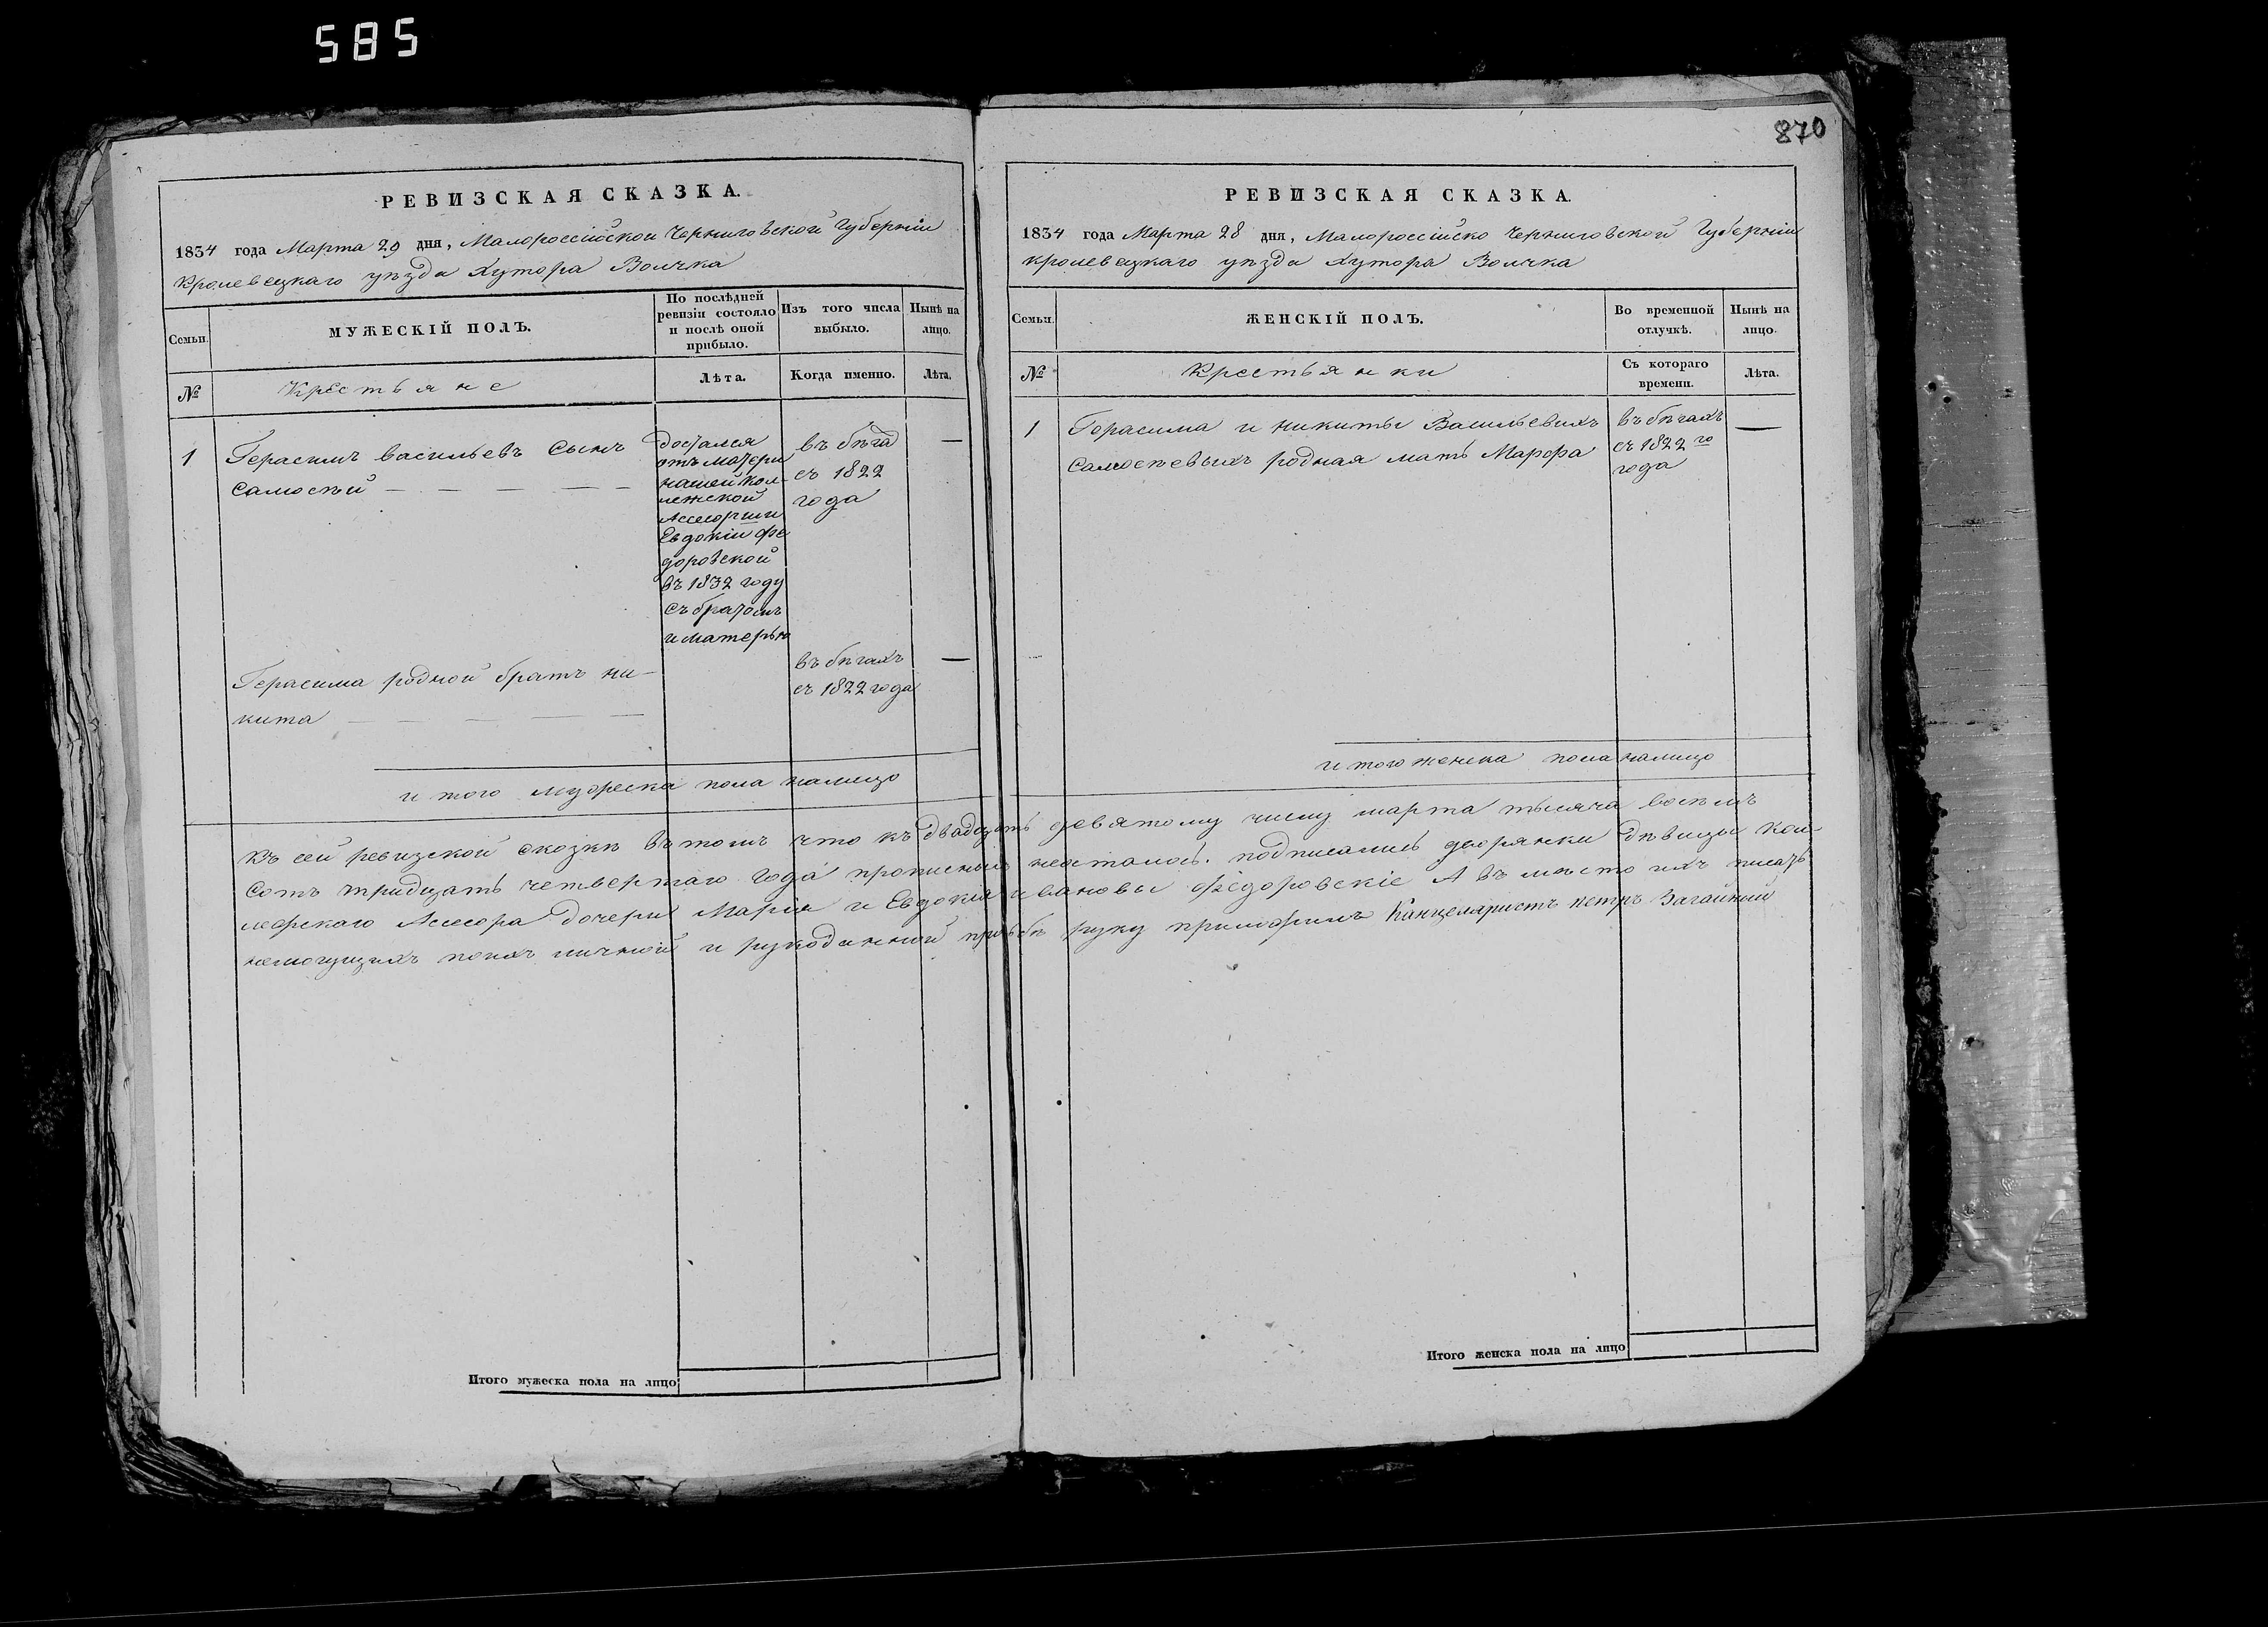 585
870
РЕВИЗСКАЯ СКАЗКА.
1834 года Марта 29 дня, Малороссійской Черниговской Губерніи
Кролевецкаго уѣзда Хутора Волчка
Семьи.
МУЖЕСКІЙ ПОЛЪ.
По послѣдней
ревизіи состояло
и послѣ оной
прибыло.
Изъ того числа
выбыло.
Нынѣ на
лицо.
№
Крестьяне
Лѣта.
Когда именно.
Лѣта.
1
Герасимъ васильевъ сынъ
Самосѣй — — — — —
достался
отъ матери
нашей кол-
лежской
Ассесорши
Евдокіи фе
доровской
въ 1832 году
съ братомъ
и матерью
въ бѣга
съ 1822
года
—
Герасима родной братъ ни-
кита — — — — —
въ бѣгахъ
съ 1822 года
—
и того мужеска пола налицо
РЕВИЗСКАЯ СКАЗКА.
1834 года Марта 28 дня, Малороссійско Черниговской Губерніи
кролевецкаго уѣзда Хутора Волчка
Семьи.
ЖЕНСКІЙ ПОЛЪ.
Во временной
отлучкѣ.
Нынѣ на
лицо.
№
Крестьянки
Съ котораго
времени.
Лѣта.
1
Герасима и никиты Васильевыхъ
Самосѣевыхъ родная мать Марфа
въ бѣгахъ
съ 1822 го
года
—
и того женска пола налицо
Къ сей ревизской сказкѣ въ томъ что къ двадцать девятому числу марта тысяча восемъ
сотъ тридцать четвертаго года прописныхъ неосталось. подписались дворянки дѣвицы кол-
лежскаго Ассесора дочери Марія и Евдокіа ивановы Федоровскіе А въ мѣсто ихъ писать
немогущихъ поихъ личной и рукоданной прозбѣ руку приложилъ Канцеляристъ петръ Загайный
Итого мужеска пола на лицо
Итого женска пола на лицо